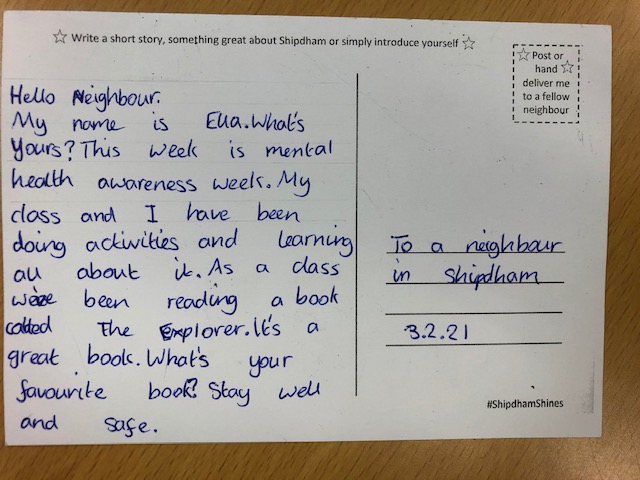 ☆ Write a short story, something great about Shipdham or simply introduce yourself ☆
☆ Post or
hand ☆
deliver me
to a fellow
neighbour
Hello Neighbour.
My name is Ella. What's
yours? This week is mental
health awareness week. My
class and I have been
doing activities and learning
all about it. As a class
we've been reading a book
called The Explorer. It's a
great book. What's your
favourite book? Stay well
and safe.
To a neighbour
in Shipdham
3.2.21
#ShipdhamShines